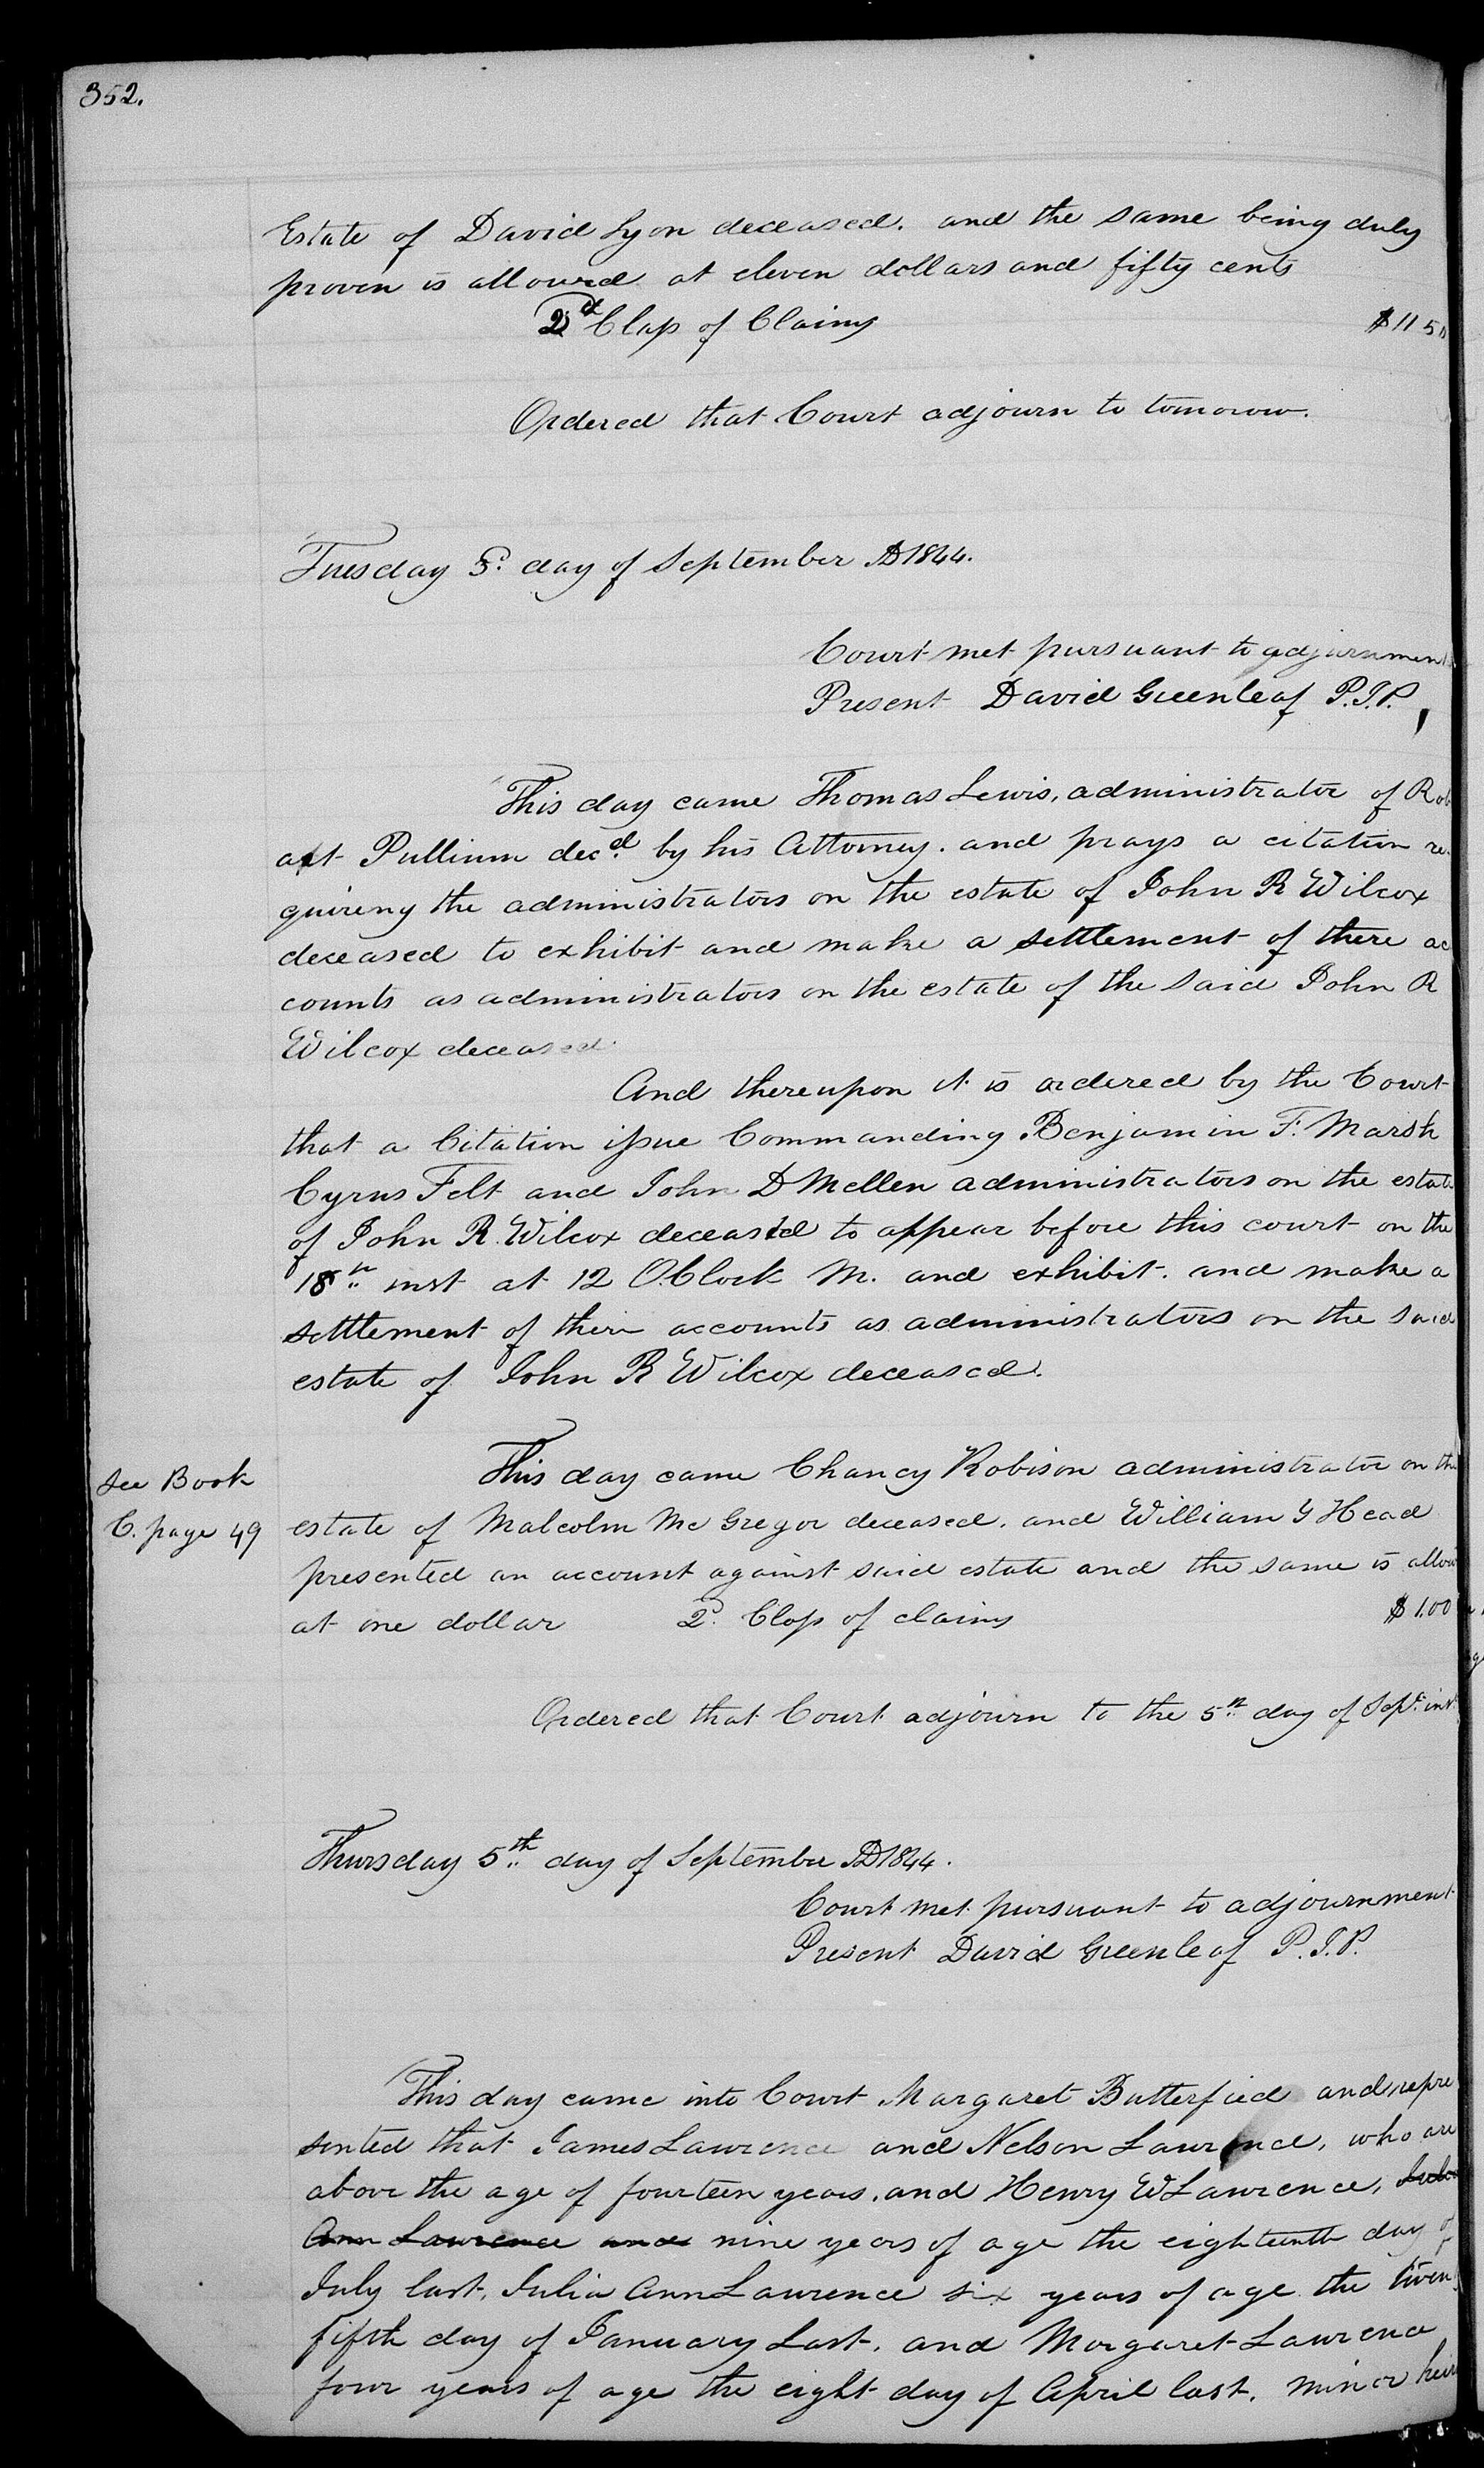 352.
Estate of David Lyon deceased. and the same being duly
proven is allowed at eleven dollars and fifty cents
2d Class of Claims $11 50
Ordered that Court adjourn to tomorow.
Tuesday 3d. day of September AD 1844.
Court met pursuant to adjournment
Present David Greenleaf P.J.P.
This day came Thomas Lewis, administrator of Rob
art Pullium decd. by his Attorney. and prays a citation re-
quireng the administrators on the estate of John R Wilcox
deceased to exhibit and make a settlement of there ac
counts as administrators on the estate of the said John R
Wilcox deceased.
And thereupon it is ordered by the Court
that a Citation issue Commanding Benjamin F. Marsh
Cyrus Felt and John D Mellen administrators on the estate
of John R. Wilcox deceased to appear before this court on the
18th inst at 12 OClock M. and exhibit. and make a
settlement of their accounts as administrators on the said
estate of John R Wilcox deceased.
See Book
C. page 49
This day came Chancy Robison administrator on the
estate of Malcolm Mc Gregor deceased. and William G Head
presented an account against said estate and the same is allow
at one dollar 2d. Class of claims $1.00
Ordered that Court adjourn to the 5th day of Sept. inst.
Thursday 5th day of September AD 1844.
Court met pursuant to adjournment
Present David Greenleaf P.J.P.
This day came into Court Margaret Butterfied and repre
sented that James Lawrence and Nelson Lawrence, who are
above the age of fourteen years, and Henry W Lawrence, Julia
Ann Lawrence and nine years of age the eighteenth day of
July last, Julia Ann Lawrence six years of age the twenty
fifth day of January Last, and Margaret Lawrence
four years of age the eight day of April last, minor heirs